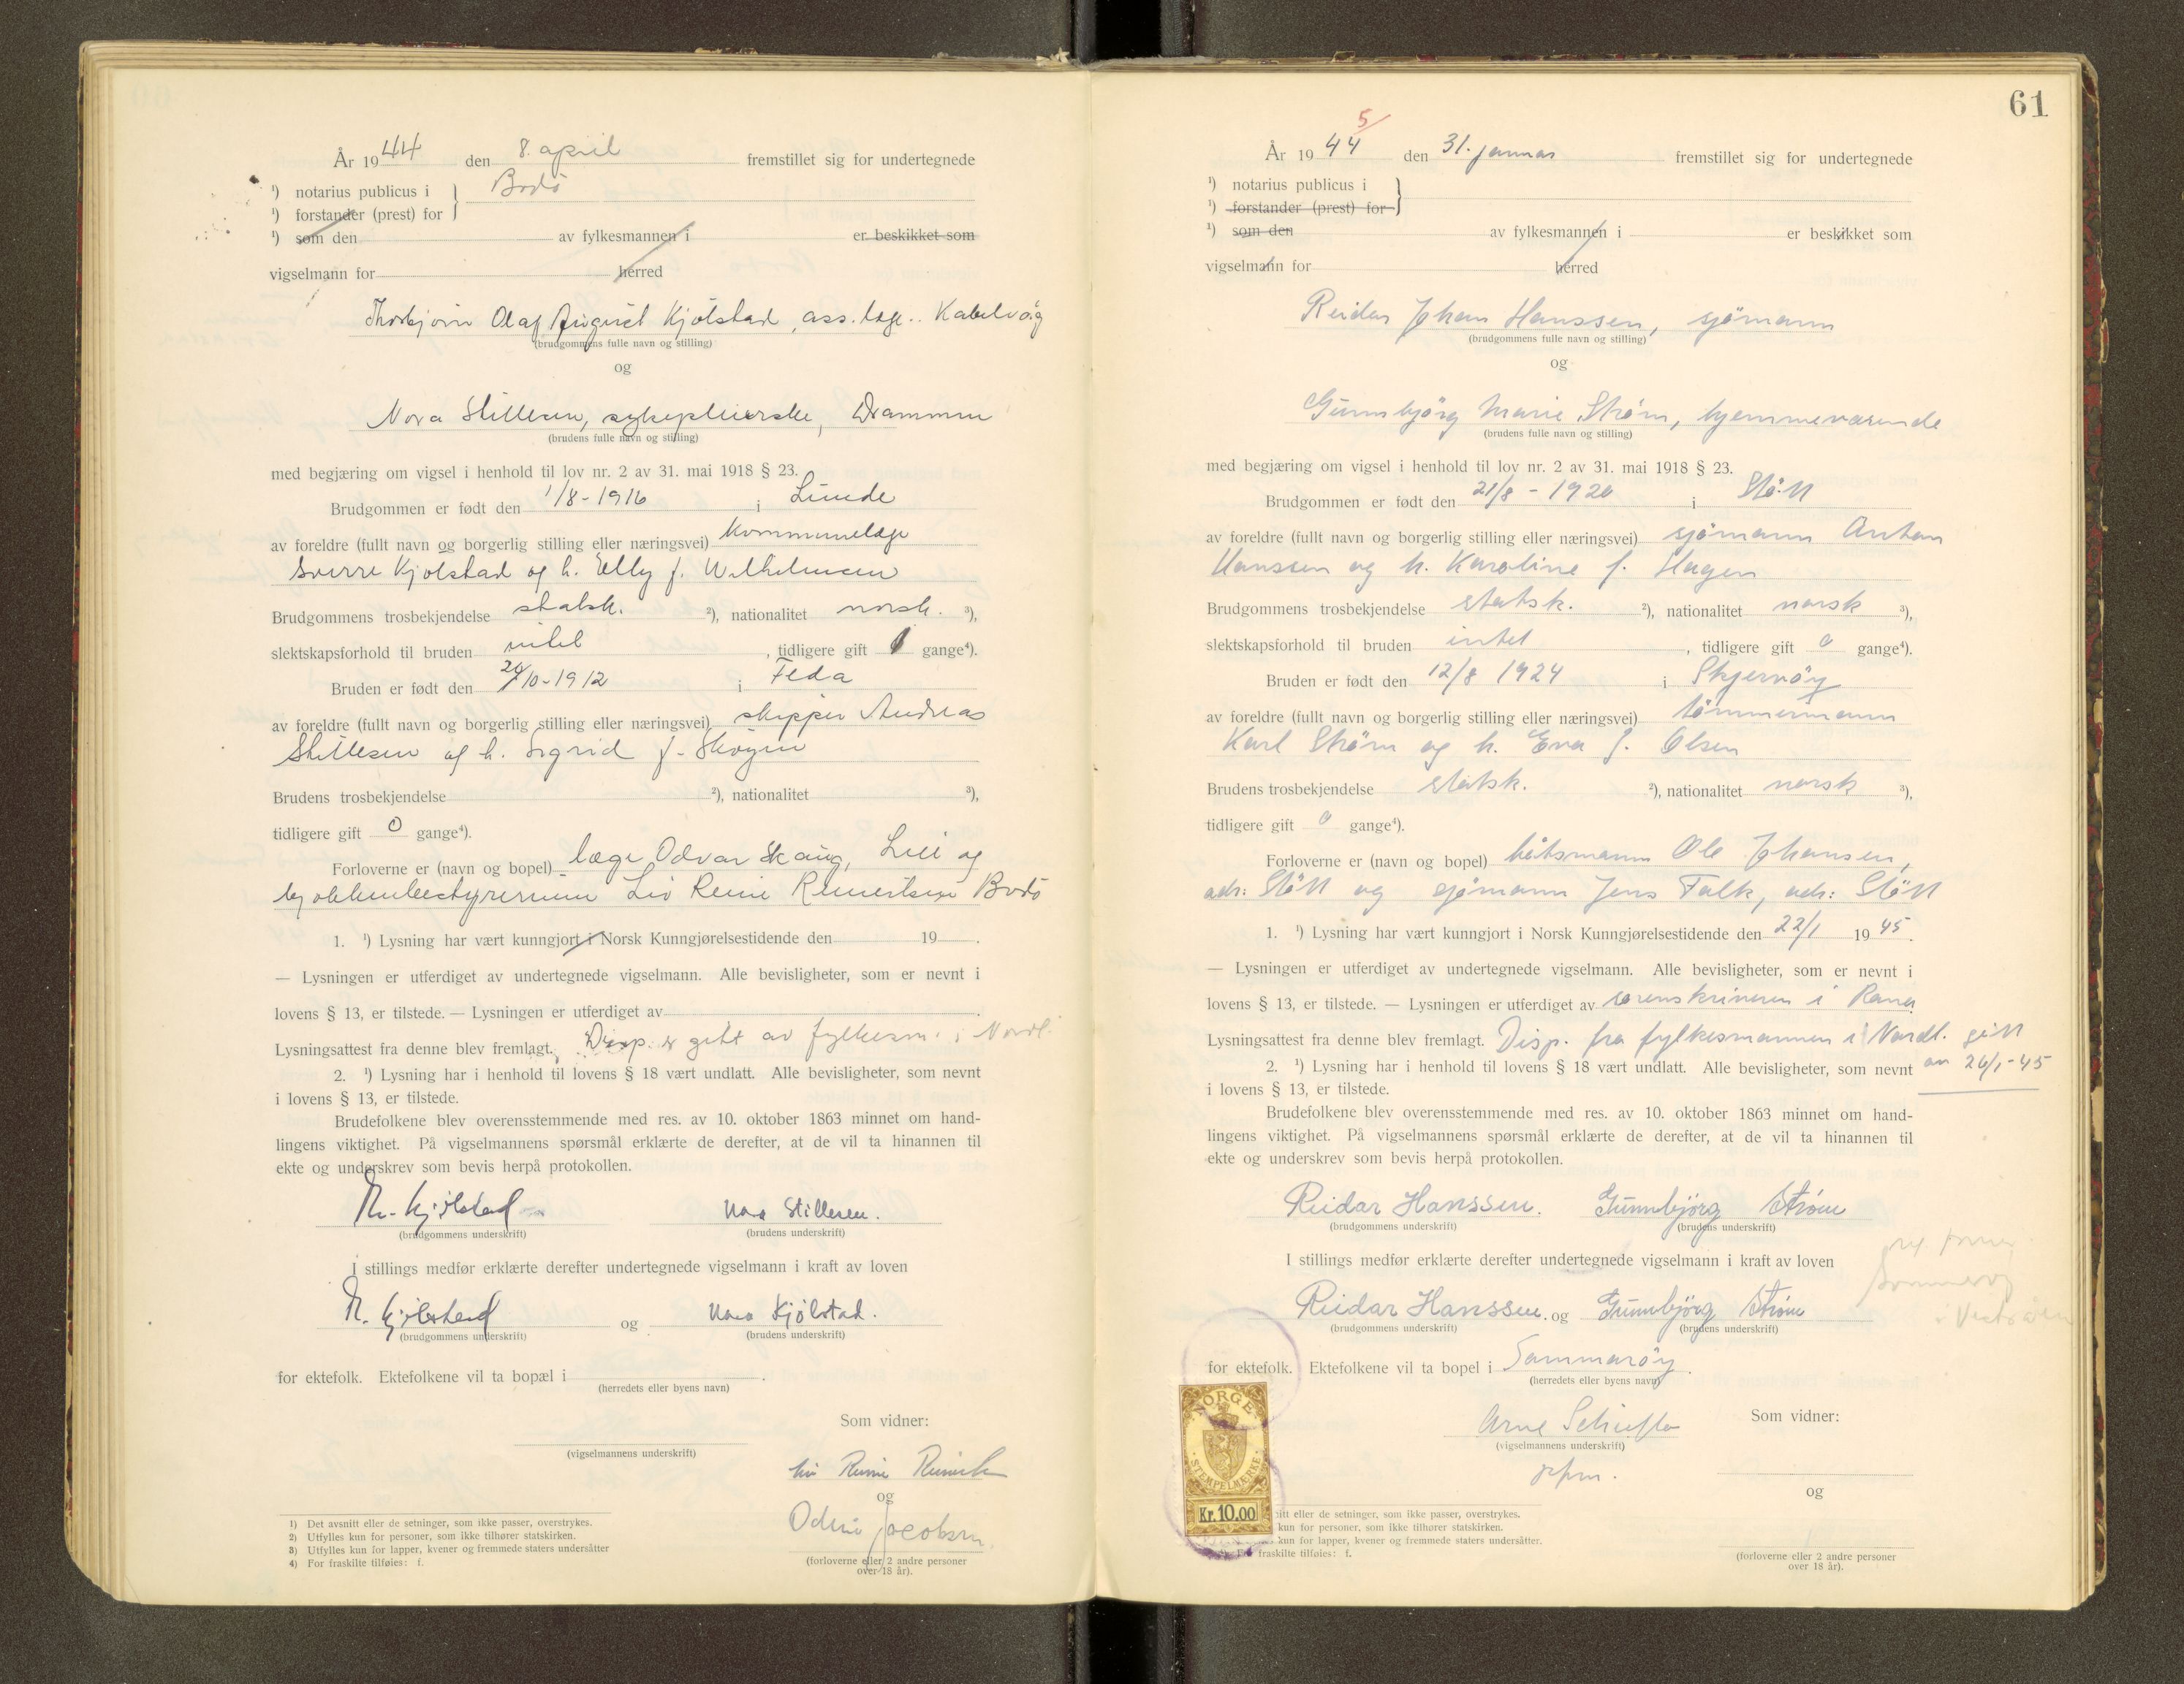 År 1944 den 8. april fremstillet sig for undertegnede
¹) notarius publicus i } Bodö
¹) forstander (prest) for
¹) som den av fylkesmannen i er beskikket som
vigselmann for herred
Thorbjörn Olaf August Kjölstad, ass. læge.. Kabelvåg
(brudgommens fulle navn og stilling)
og
Nora Stillesen, sykepleierske, Drammen
(brudens fulle navn og stilling)
med begjæring om vigsel i henhold til lov nr. 2 av 31. mai 1918 § 23.
Brudgommen er født den 1/8-1916 i Lunde
av foreldre (fullt navn og borgerlig stilling eller næringsvei) Kommunelæge
Sverre Kjölstad og h. Elly f. Wilhelmsen
Brudgommens trosbekjendelse statsk. ²), nationalitet norsk. ³),
slektskapsforhold til bruden intet, tidligere gift gange⁴).
Bruden er født den /10-1912 i Feda
av foreldre (fullt navn og borgerlig stilling eller næringsvei) skipper Andreas
Stillesen og h. Sigrid f.
Brudens trosbekjendelse ²), nationalitet ³),
tidligere gift 0 gange⁴).
Forloverne er (navn og bopel) læge Odvar Skaug, og
Liv Bodö
1. ¹) Lysning har vært kunngjort i Norsk Kunngjørelsestidende den 19 .
— Lysningen er utferdiget av undertegnede vigselmann. Alle bevisligheter, som er nevnt i
lovens § 13, er tilstede. — Lysningen er utferdiget av .
Lysningsattest fra denne blev fremlagt. Disp. er gitt av fylkesm. i Nordl.
2. ¹) Lysning har i henhold til lovens § 18 vært undlatt. Alle bevisligheter, som nevnt
i lovens § 13, er tilstede.
Brudefolkene blev overensstemmende med res. av 10. oktober 1863 minnet om hand-
lingens viktighet. På vigselmannens spørsmål erklærte de derefter, at de vil ta hinannen til
ekte og underskrev som bevis herpå protokollen.
Th. Kjölstad Nora Stillesen.
(brudgommens underskrift) (brudens underskrift)
I stillings medfør erklærte derefter undertegnede vigselmann i kraft av loven
Th. Kjölstad og Nora Kjölstad.
(brudgommens underskrift) (brudens underskrift)
for ektefolk. Ektefolkene vil ta bopæl i .
(herredets eller byens navn)
Som vidner:
(vigselmannens underskrift)
Liv
og
Odin Jacobsen.
(forloverne eller 2 andre personer
over 18 år).
1) Det avsnitt eller de setninger, som ikke passer, overstrykes.
2) Utfylles kun for personer, som ikke tilhører statskirken.
3) Utfylles kun for lapper, kvener og fremmede staters undersåtter
4) For fraskilte tilføies: f.
61
5
År 1944 den 31. januar fremstillet sig for undertegnede
¹) notarius publicus i }
¹) forstander (prest) for
¹) som den av fylkesmannen i er beskikket som
vigselmann for herred
Reidar Johan Hanssen, sjömann
(brudgommens fulle navn og stilling)
og
Gunnbjörg Marie Ström, hjemmeværende
(brudens fulle navn og stilling)
med begjæring om vigsel i henhold til lov nr. 2 av 31. mai 1918 § 23.
Brudgommen er født den 21/8 - 1920 i Stött
av foreldre (fullt navn og borgerlig stilling eller næringsvei) sjömann Anton
Hanssen og h. Karoline f. Hagen
Brudgommens trosbekjendelse statsk. ²), nationalitet norsk ³),
slektskapsforhold til bruden intet, tidligere gift 0 gange⁴).
Bruden er født den 12/8 1924 i Skjervöy
av foreldre (fullt navn og borgerlig stilling eller næringsvei) tömmermann
Karl Ström og h. Eva f. Olsen
Brudens trosbekjendelse statsk. ²), nationalitet norsk ³),
tidligere gift 0 gange⁴).
Forloverne er (navn og bopel) båtsmann Ole Johansen,
adr: Stött og sjömann Jens Falk, adr: Stött
1. ¹) Lysning har vært kunngjort i Norsk Kunngjørelsestidende den 22/1 1945.
— Lysningen er utferdiget av undertegnede vigselmann. Alle bevisligheter, som er nevnt i
lovens § 13, er tilstede. — Lysningen er utferdiget av sorenskriveren i Rana.
Lysningsattest fra denne blev fremlagt. Disp. fra fylkesmannen i Nordl. gitt
2. ¹) Lysning har i henhold til lovens § 18 vært undlatt. Alle bevisligheter, som nevnt
26/1-45
i lovens § 13, er tilstede.
Brudefolkene blev overensstemmende med res. av 10. oktober 1863 minnet om hand-
lingens viktighet. På vigselmannens spørsmål erklærte de derefter, at de vil ta hinannen til
ekte og underskrev som bevis herpå protokollen.
Reidar Hanssen. Gunnbjörg Ström
(brudgommens underskrift) (brudens underskrift)
I stillings medfør erklærte derefter undertegnede vigselmann i kraft av loven
Reidar Hanssen. og Gunnbjörg Ström
(brudgommens underskrift) (brudens underskrift)
for ektefolk. Ektefolkene vil ta bopel i Sammaröy.
(herredets eller byens navn)
Arne Som vidner:
(vigselmannens underskrift)
og
(forloverne eller 2 andre personer
over 18 år).
NORGE
STEMPELMÆRKE
Kr. 10.00
eller de setninger, som ikke passer, overstrykes.
kun for personer, som ikke tilhører statskirken.
kun for lapper, kvener og fremmede staters undersåtter.
fraskilte tilføies: f.